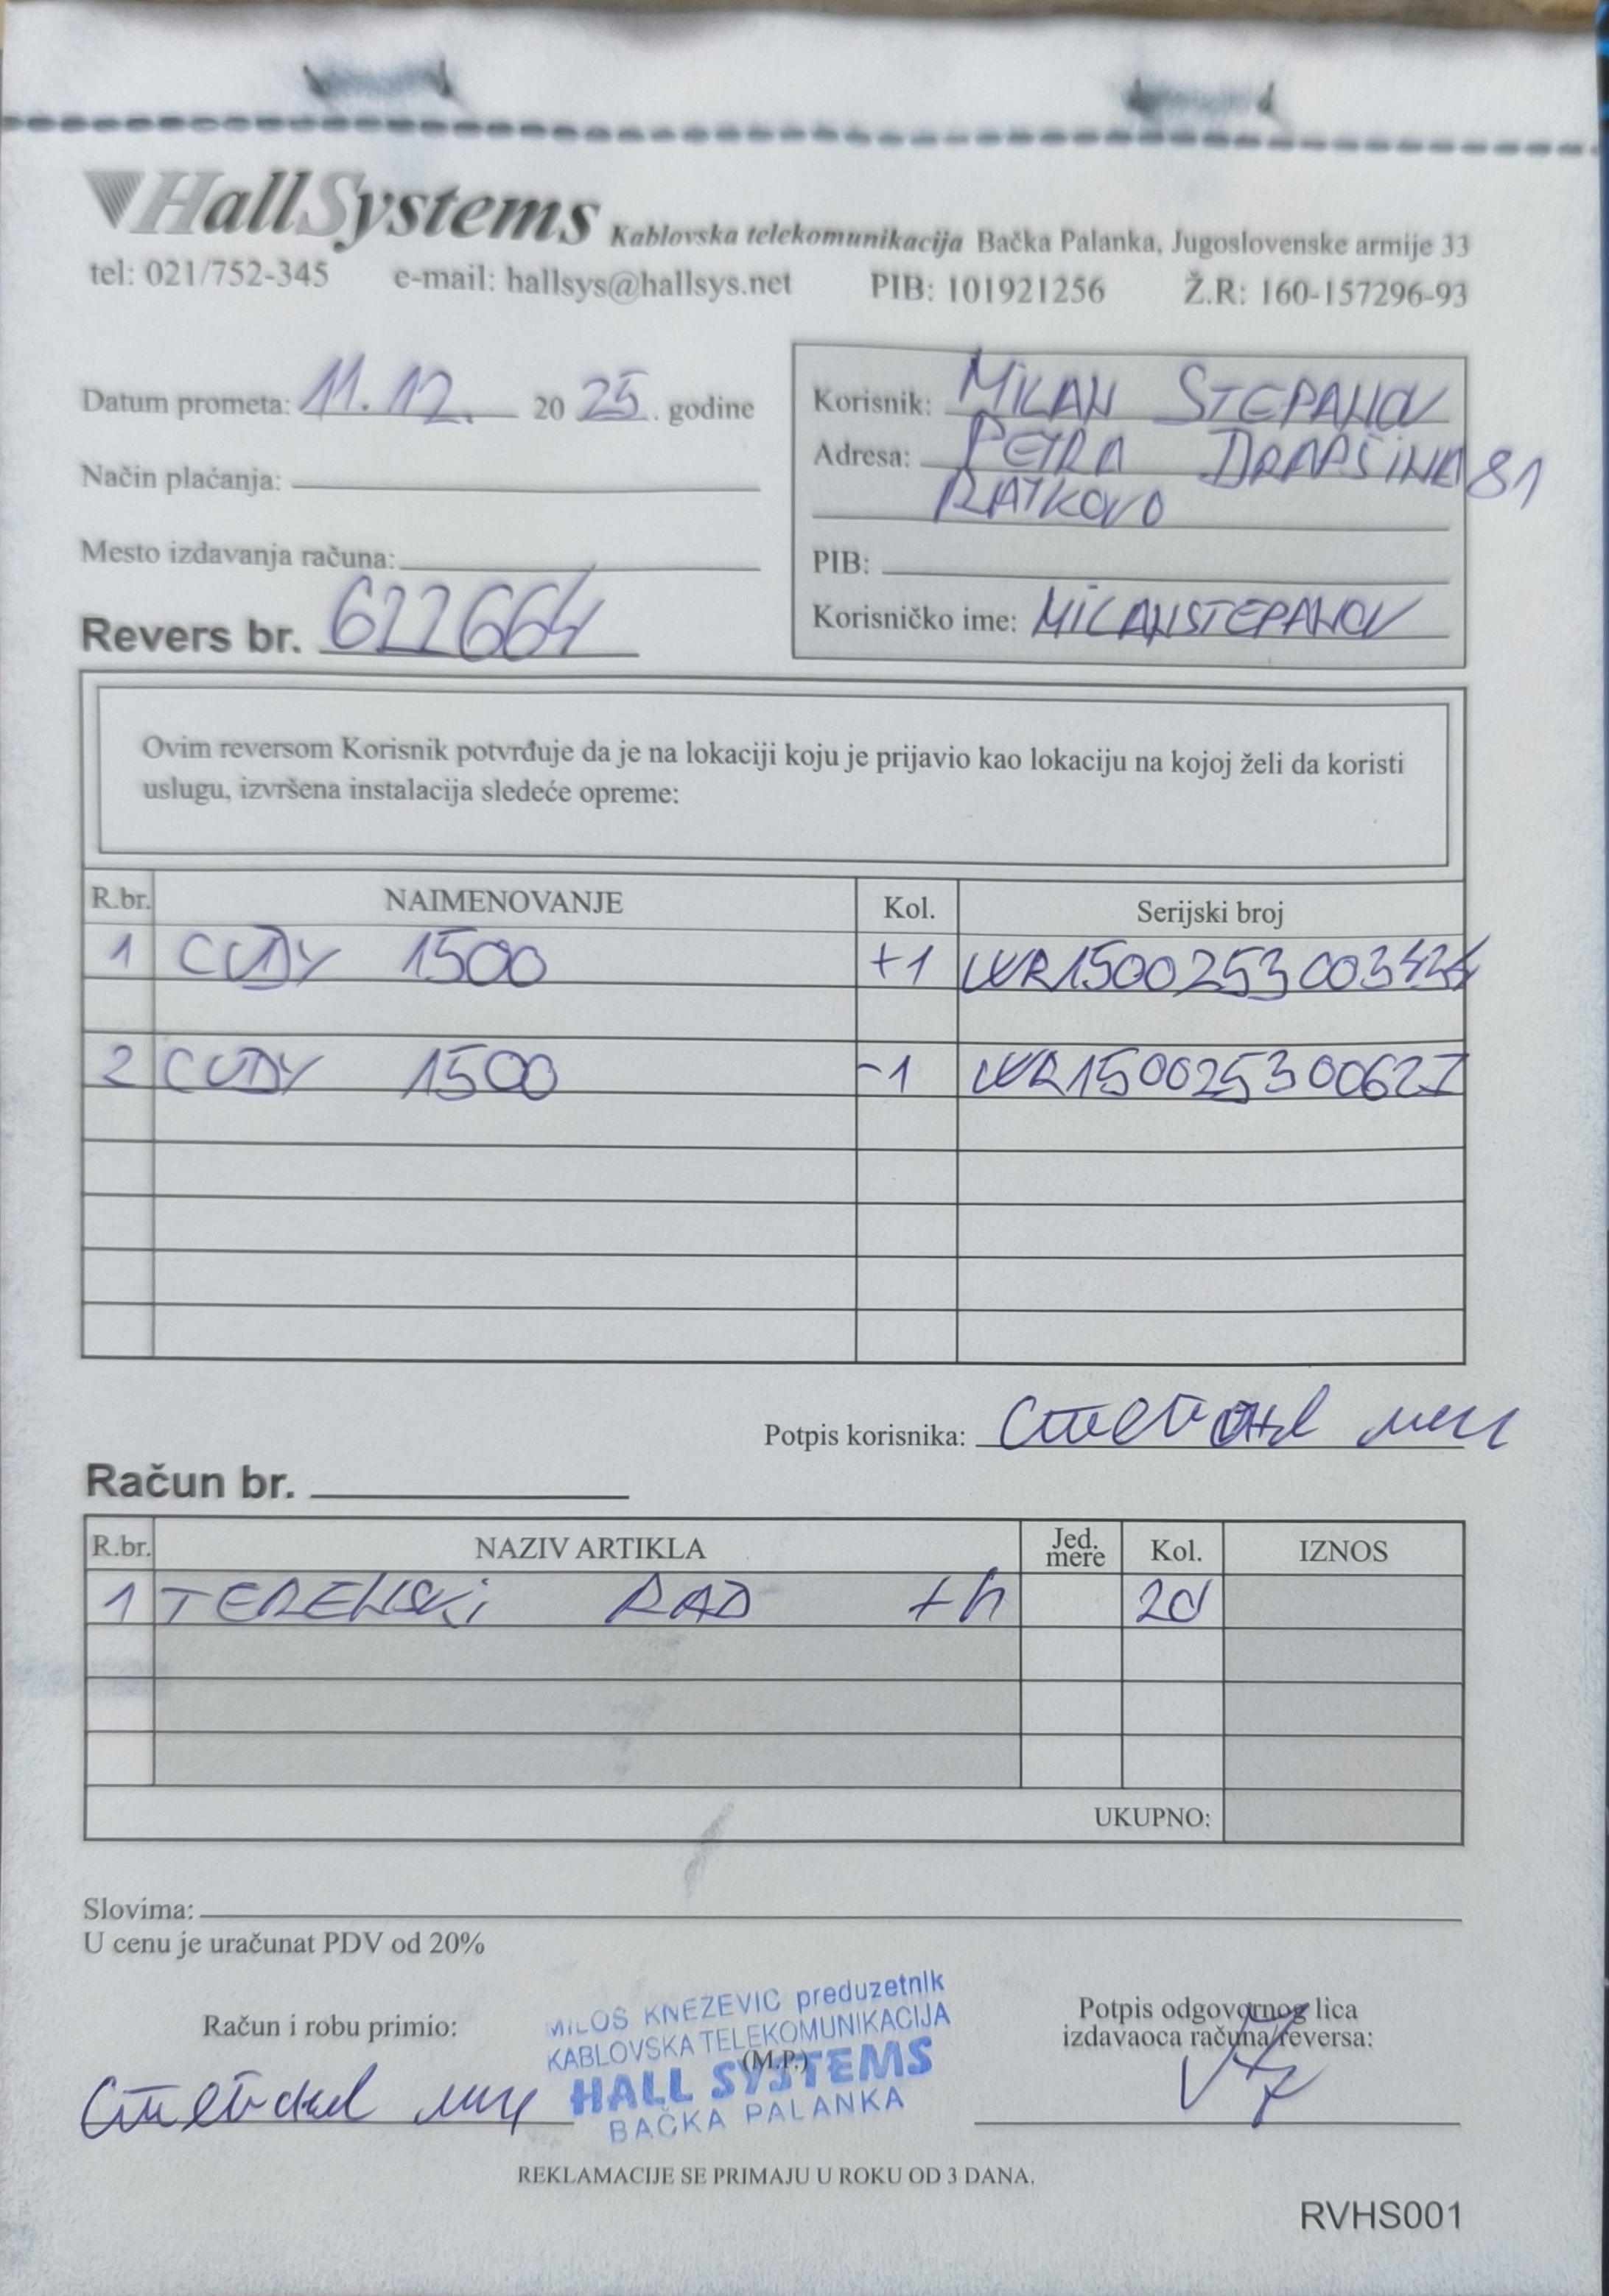 HallSystems Kablovska telekomunikacija Bačka Palanka, Jugoslovenske armije 33
tel: 021/752-345 e-mail: hallsys@hallsys.net PIB: 101921256 Ž.R: 160-157296-93
Datum prometa: 11.12. 20 25. godine
Način plaćanja:
Mesto izdavanja računa:
Revers br. 622664
Korisnik: MILAN STEPANOV
Adresa: PETRA DRAPŠINA 81
RATKOVO
PIB:
Korisničko ime: MILANSTEPANOV
Ovim reversom Korisnik potvrđuje da je na lokaciji koju je prijavio kao lokaciju na kojoj želi da koristi
uslugu, izvršena instalacija sledeće opreme:
R.br. NAIMENOVANJE Kol. Serijski broj
1 CUDY 1500 +1
2 CUDY 1500 -1
Potpis korisnika:
Račun br.
R.br. NAZIV ARTIKLA Jed. mere Kol. IZNOS
1 TERENSKI RAD
UKUPNO:
Slovima:
U cenu je uračunat PDV od 20%
Račun i robu primio:
MILOS KNEZEVIC preduzetnik
KABLOVSKA TELEKOMUNIKACIJA
(M.P.)
HALL SYSTEMS
BAČKA PALANKA
Potpis odgovornog lica
izdavaoca računa/reversa:
REKLAMACIJE SE PRIMAJU U ROKU OD 3 DANA.
RVHS001